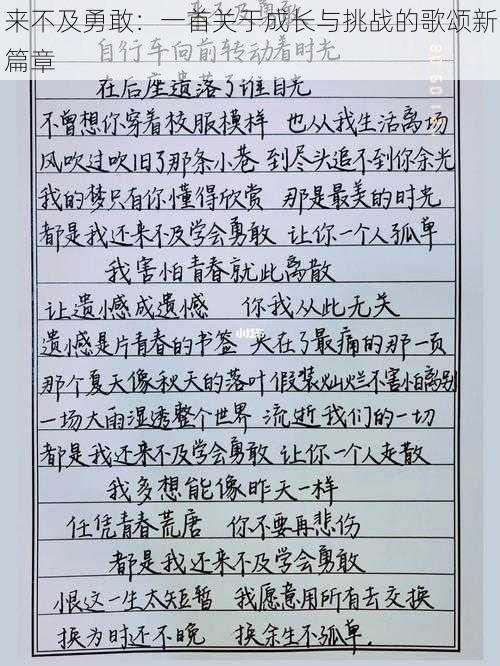 来不及勇敢：一首关于成长与挑战的歌颂新
篇章
来不及勇敢
自行车向前转动着时光
在后座遗落了谁目光
不曾想你穿着校服模样 也从我生活离场
风吹过吹旧了那条小巷 到尽头追不到你余光
我的梦只有你懂得欣赏 那是最美的时光
都是我还来不及学会勇敢 让你一个人孤单
我害怕青春就此离散
让遗憾成遗憾 你我从此无关
小红书
遗憾是片青春的书签 夹在了最痛的那一页
那个夏天像秋天的落叶 假装灿烂不害怕离别
一场大雨湿透整个世界 流逝我们的一切
都是我还来不及学会勇敢 让你一个人走散
我多想能像昨天一样
任凭青春荒唐 你不要再悲伤
都是我还来不及学会勇敢
恨这一生太短暂 我愿意用所有去交换
换为时还不晚 换余生不孤单.